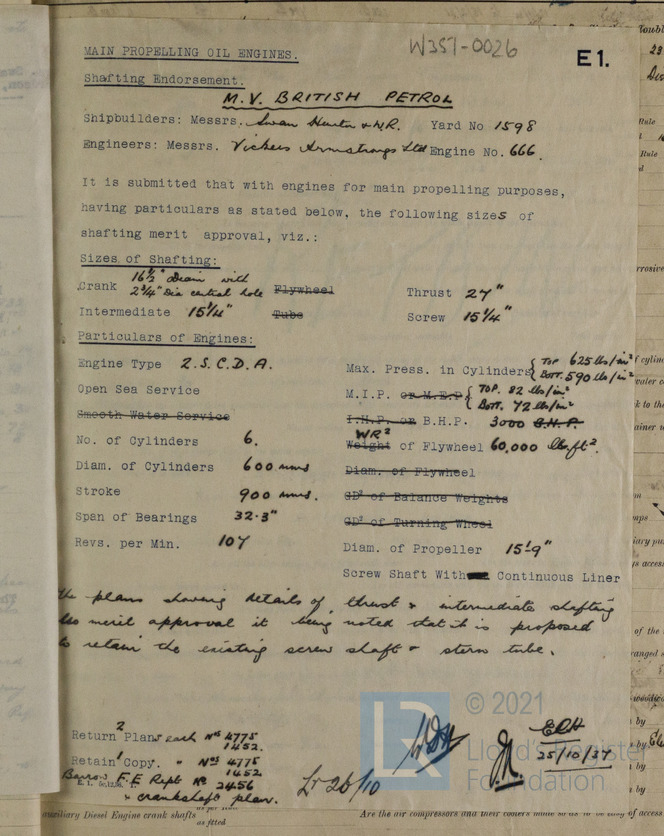 W357-0026
E1.
MAIN PROPELLING OIL ENGINES.
Shafting Endorsement.
M.V. BRITISH PETROL
Shipbuilders: Messrs. Swan Hunter & W.R. Yard No 1598
Engineers: Messrs. Vickers Armstrongs Ltd Engine No. 666.
It is submitted that with engines for main propelling purposes,
having particulars as stated below, the following sizes of
shafting merit approval, viz.:
Sizes of Shafting:
Crank 16½" Diam with 2¾" Dia central hole Flywheel Thrust 27"
Intermediate 15¼" Tube Screw 15¼"
Particulars of Engines:
Engine Type 2.S.C.D.A. Max. Press. in Cylinders { TOP 625 lbs/in² BOTT. 590 lbs/in²
Open Sea Service M.I.P. or M.E.P. { TOP. 82 lbs/in² BOTT. 72 lbs/in²
Smooth Water Service I.H.P. or B.H.P. 3000 B.H.P.
No. of Cylinders 6. WR² Weight of Flywheel 60,000 lbs.ft².
Diam. of Cylinders 600 mms Diam. of Flywheel
Stroke 900 mms. GD² of Balance Weights
Span of Bearings 32.3" GD² of Turning Wheel
Revs. per Min. 107 Diam. of Propeller 15'.9"
Screw Shaft With Continuous Liner
The plans showing details of thrust & intermediate shafting
also merit approval it being noted that it is proposed
to retain the existing screw shaft & stern tube.
Return 2 Plans each Nos 4775
1452.
Retain 1 Copy. " Nos 4775
1452
Barrow F.E Rept No 2456
& crankshaft plan.
Lr 26/10
ERH
25/10/37
© 2021
Lloyd's Register
Foundation
auxiliary Diesel Engine crank shafts as per rule
as fitted
Are the air compressors and their coolers made so as to be easy of access